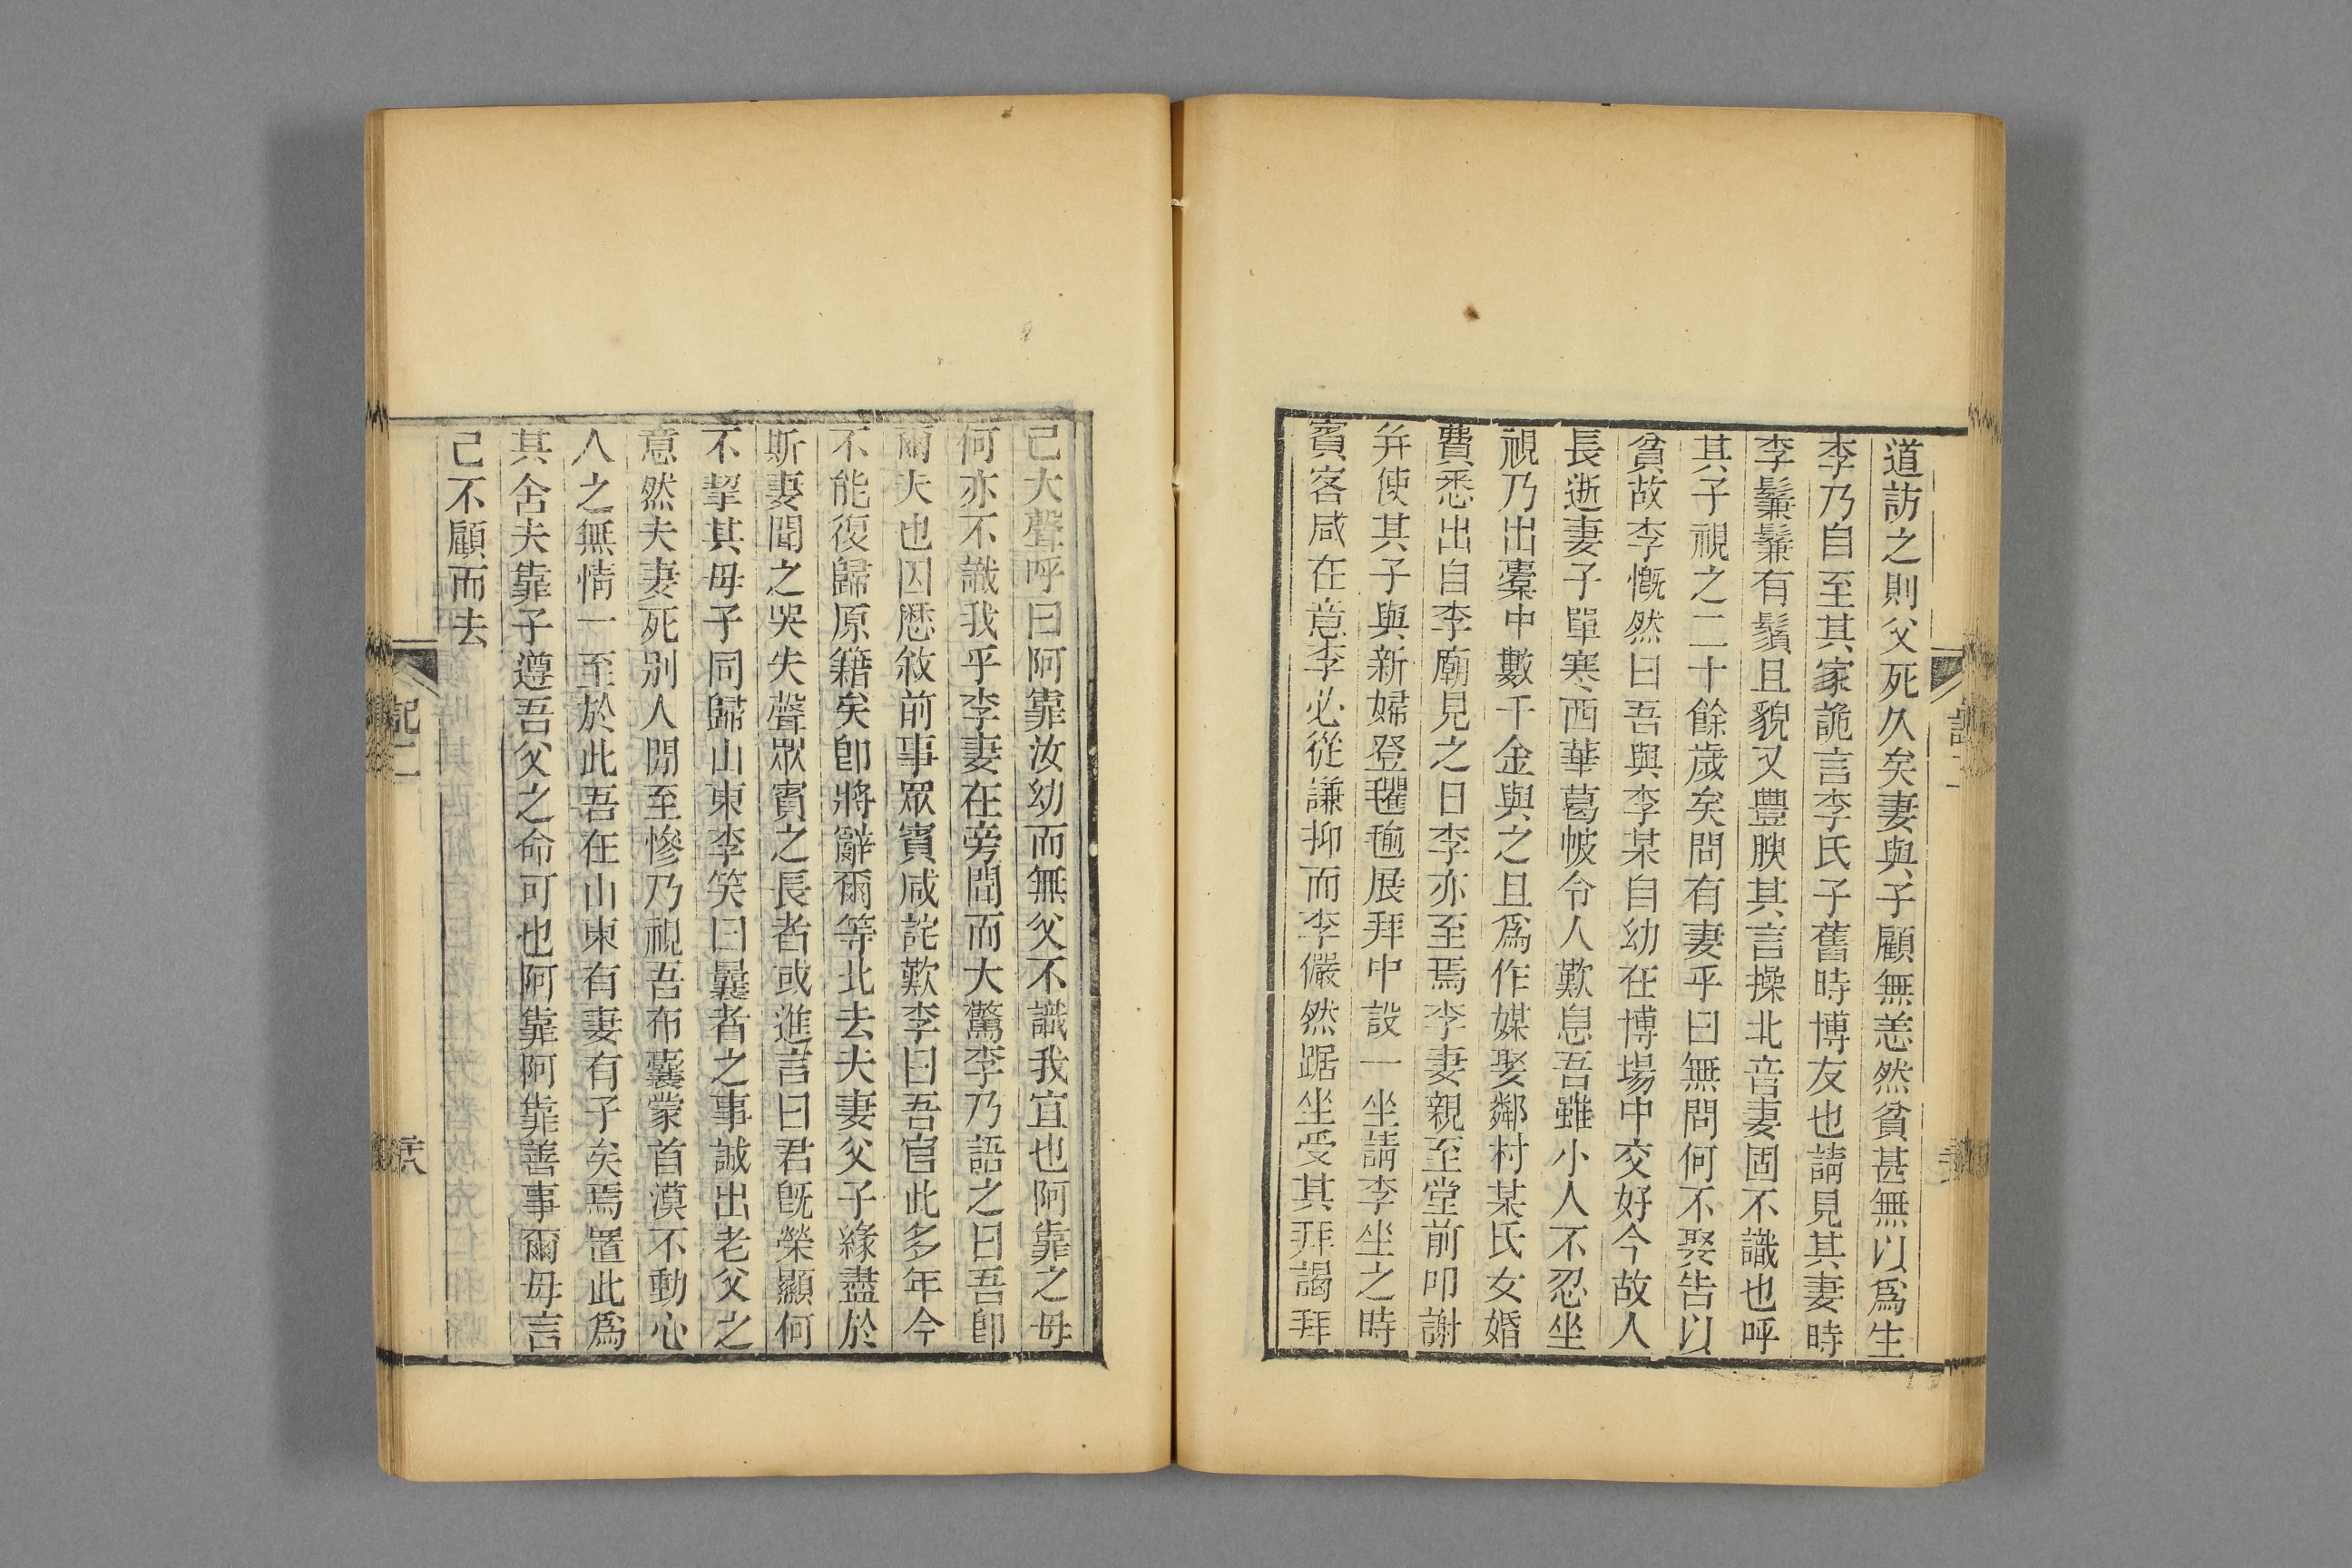 道訪之則父死久矣妻與子顧無恙然貧甚無以爲生
李乃自至其家詭言李氏子舊時博友也請見其妻時
李鬑鬑有鬚且貌又豐腴其言操北音妻固不識也呼
其子視之二十餘歲矣問有妻乎曰無問何不娶告以
貧故李慨然曰吾與李某自幼在博場中交好今故人
長逝妻子單寒西華葛帔令人歎息吾雖小人不忍坐
視乃出橐中數千金與之且爲作媒娶鄰村某氏女婚
費悉出自李廟見之日李亦至焉李妻親至堂前叩謝
并使其子與新婦登氍毹展拜中設一坐請李坐之時
賓客咸在意李必從謙抑而李儼然踞坐受其拜謁拜
已大聲呼曰阿靠汝幼而無父不識我宜也阿靠之母
何亦不識我乎李妻在旁聞而大驚李乃語之曰吾卽
爾夫也因歷敘前事眾賓咸詫歎李曰吾官此多年今
不能復歸原籍矣卽將辭爾等北去夫妻父子緣盡於
斯妻聞之哭失聲眾賓之長者或進言曰君旣榮顯何
不挈其母子同歸山東李笑曰曩者之事誠出老父之
意然夫妻死別人間至慘乃視吾布囊蒙首漠不動心
人之無情一至於此吾在山東有妻有子矣焉置此爲
其舍夫靠子遵吾父之命可也阿靠阿靠善事爾母言
已不顧而去
記二